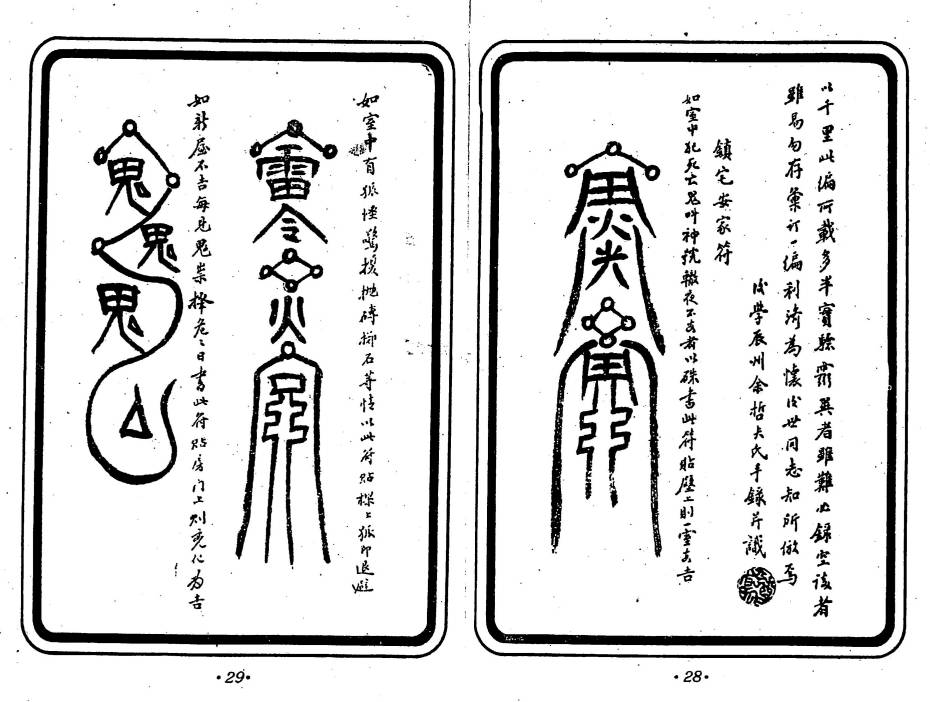 以千里此編所載多半實驗靈異者雖難必錄空談者
雖易勾存彙訂一編利濟為懷後世同志知所倣焉
後學辰州余哲夫氏手錄并識
鎮宅安家符
如室中犯死亡鬼叫神號徹夜不安者以硃書此符貼壁上則靈大吉
·28·
如室中有狐怪驚擾拋磚擲石等情以此符貼樑上狐即退避
雷令
火
如新屋不吉每見鬼祟擇危危日書此符貼房門上則兇化為吉
鬼
鬼
鬼
·29·